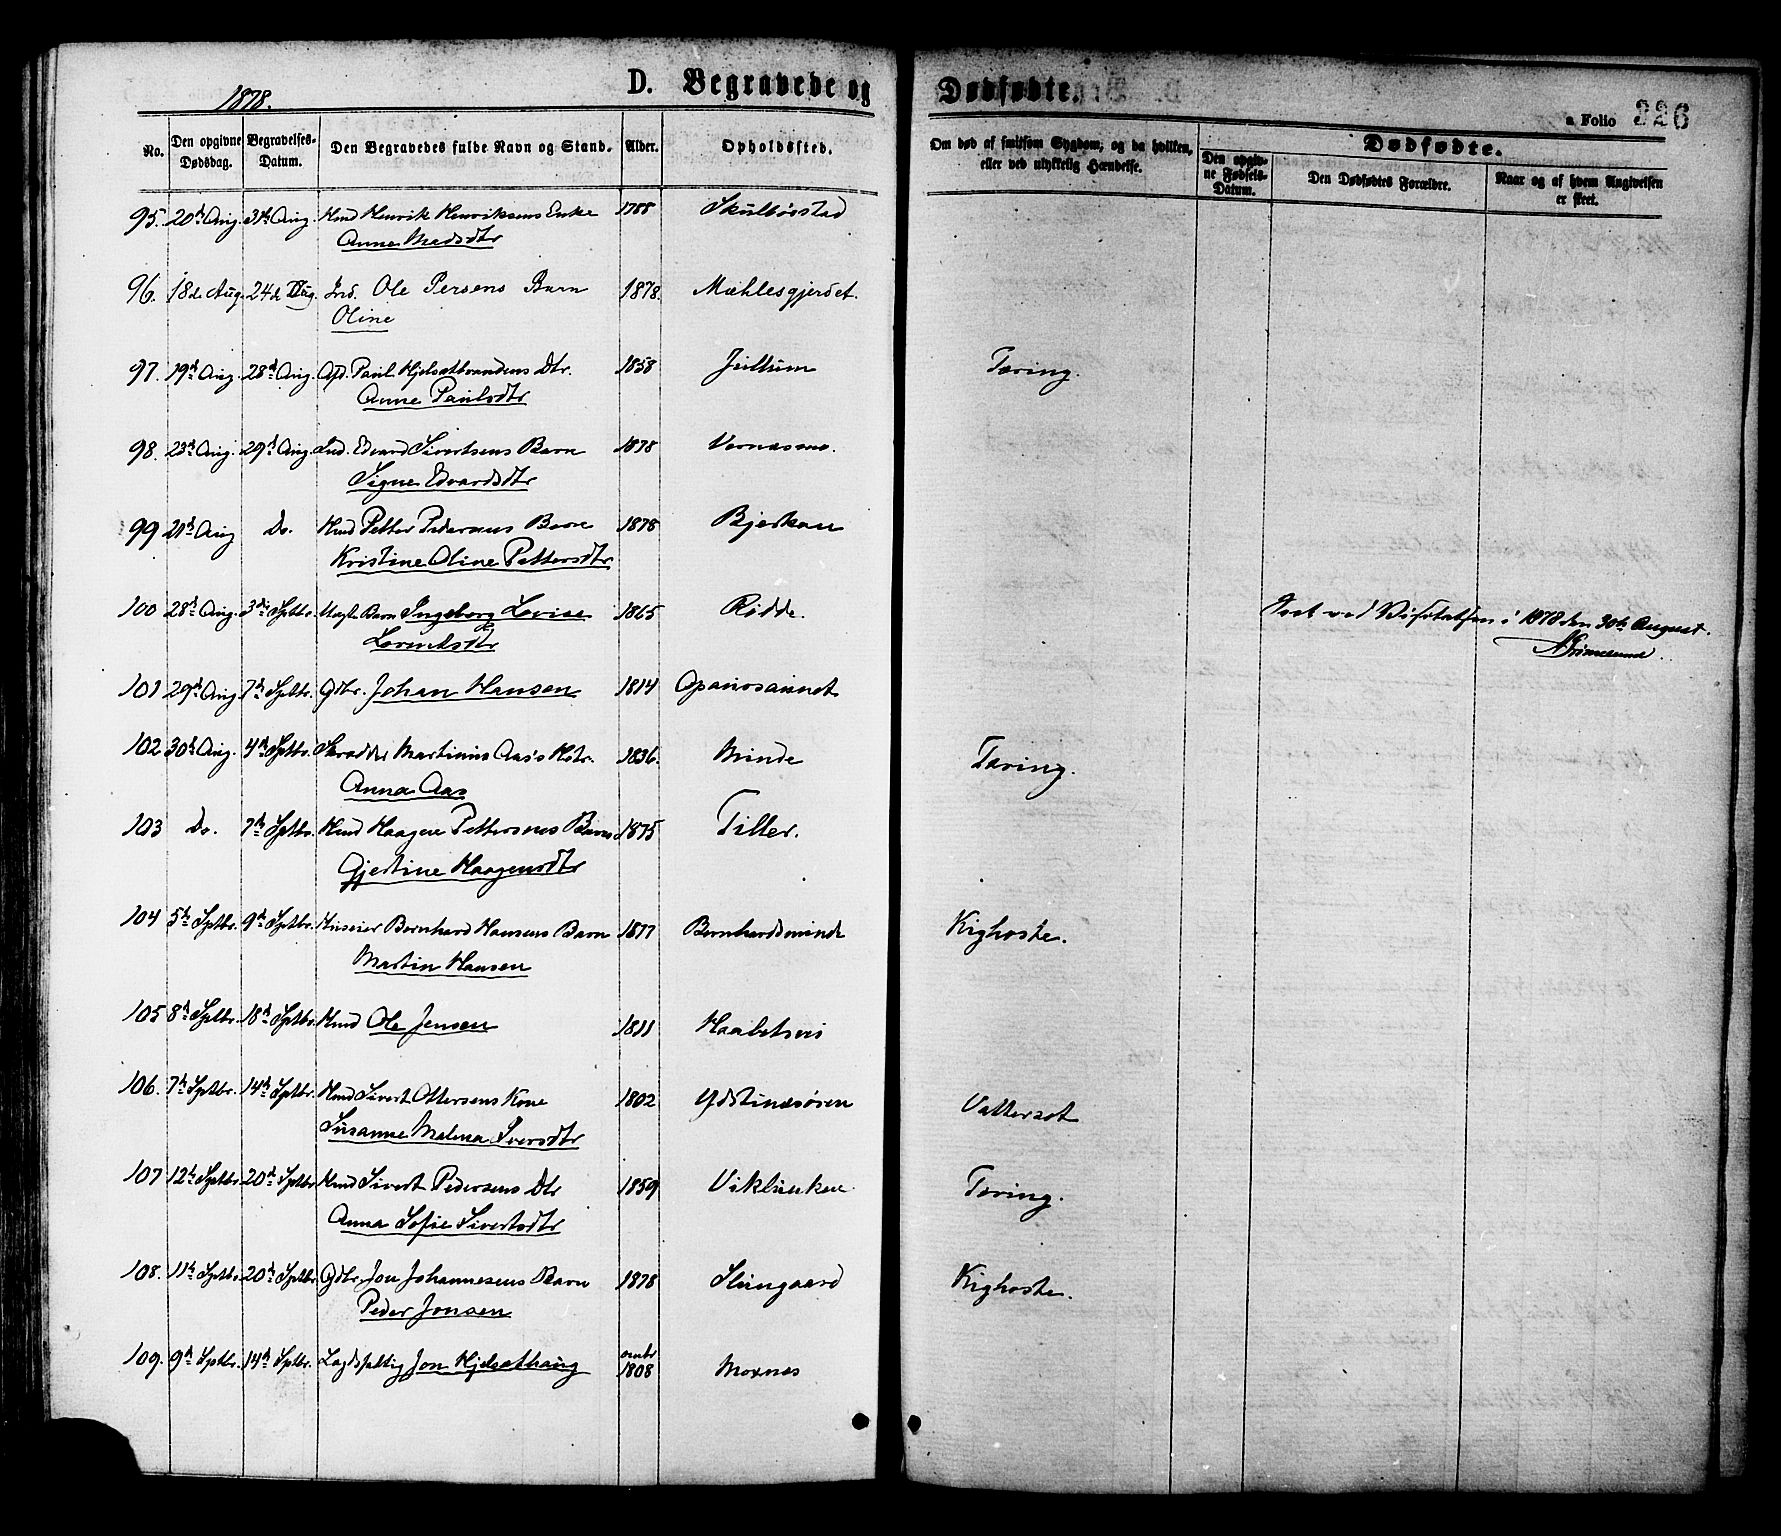 1878.
D. Begravede og
Dødfødte.
a Folio 226
No. Den opgivne Dødsdag. Begravelses-Datum. Den Begravedes fulde Navn og Stand. Alder. Opholdssted.
Om død af smitsom Sygdom, og da hvilken, eller ved ulykkelig Hændelse.
Dødfødte.
Den opgivne Fødsels-Datum. Den Dødfødtes Forældre. Naar og af hvem Angivelsen er skeet.
95. 20de Aug. 31te Aug. Hmd Henrik Henriksens Enke 1788 Skulbørstad
Anne Madsdtr
96. 18de Aug. 24de Aug. Ind. Ole Persens Barn 1878. Mæhlesgjerdet.
Oline
97. 19de Aug. 28de Aug. Afd. Paul Hjelsetbrandens Dtr. 1858 Tæring.
Anne Paulsdtr
98. 23de Aug. 29de Aug. Ind. Edvard Sivertsens Barn 1878 Værnæsmo.
Signe Edvardsdtr
99 21de Aug Do. Hmd Petter Pedersens Barn 1878 Bjerkan
Kristine Oline Pettersdtr
100 28de Aug. 3die Sptbr. Uægte Barn Ingeborg Lovise 1865 Rødde.
Lorentsdtr
Seet ved Visitatsen i 1878 den 30te August.
Grimelund
101 29de Aug 7de Sptbr. Gdbr. Johan Hansen 1814
102 30te Aug. 4de Sptbr. Skrædder Martinus Aas's Hstr. 1836. Minde Tæring.
Anna Aas
103 Do. 7de Sptbr. Hmd Haagen Pettersens Barn 1875 Tiller.
Gjertine Haagensdtr
104 5te Sptbr. 9de Sptbr. Huseier Bernhard Hansens Barn 1877 Bernhardsminde Kighoste.
Martin Hansen
105 8de Sptbr. 18de Sptbr. Hmd Ole Jensen 1811
106. 7de Sptbr. 14de Sptbr. Hmd Sivert Ottersens Kone 1802 Ydstinesøren Vattersot
Susanne Malena Iversdtr
107 12te Sptbr 20de Sptbr Hmd Sivert Pedersens Dtr 1859 Tæring.
Anna Sofie Sivertsdtr
108. 11te Sptbr 20de Sptbr Gdbr. Jon Johannesens Barn 1878 Kighoste.
Peder Jonsen
109. 9de Sptbr. 14de Sptbr. Lægdslem Jon Hjelsethaug omtr 1808 Moxnes